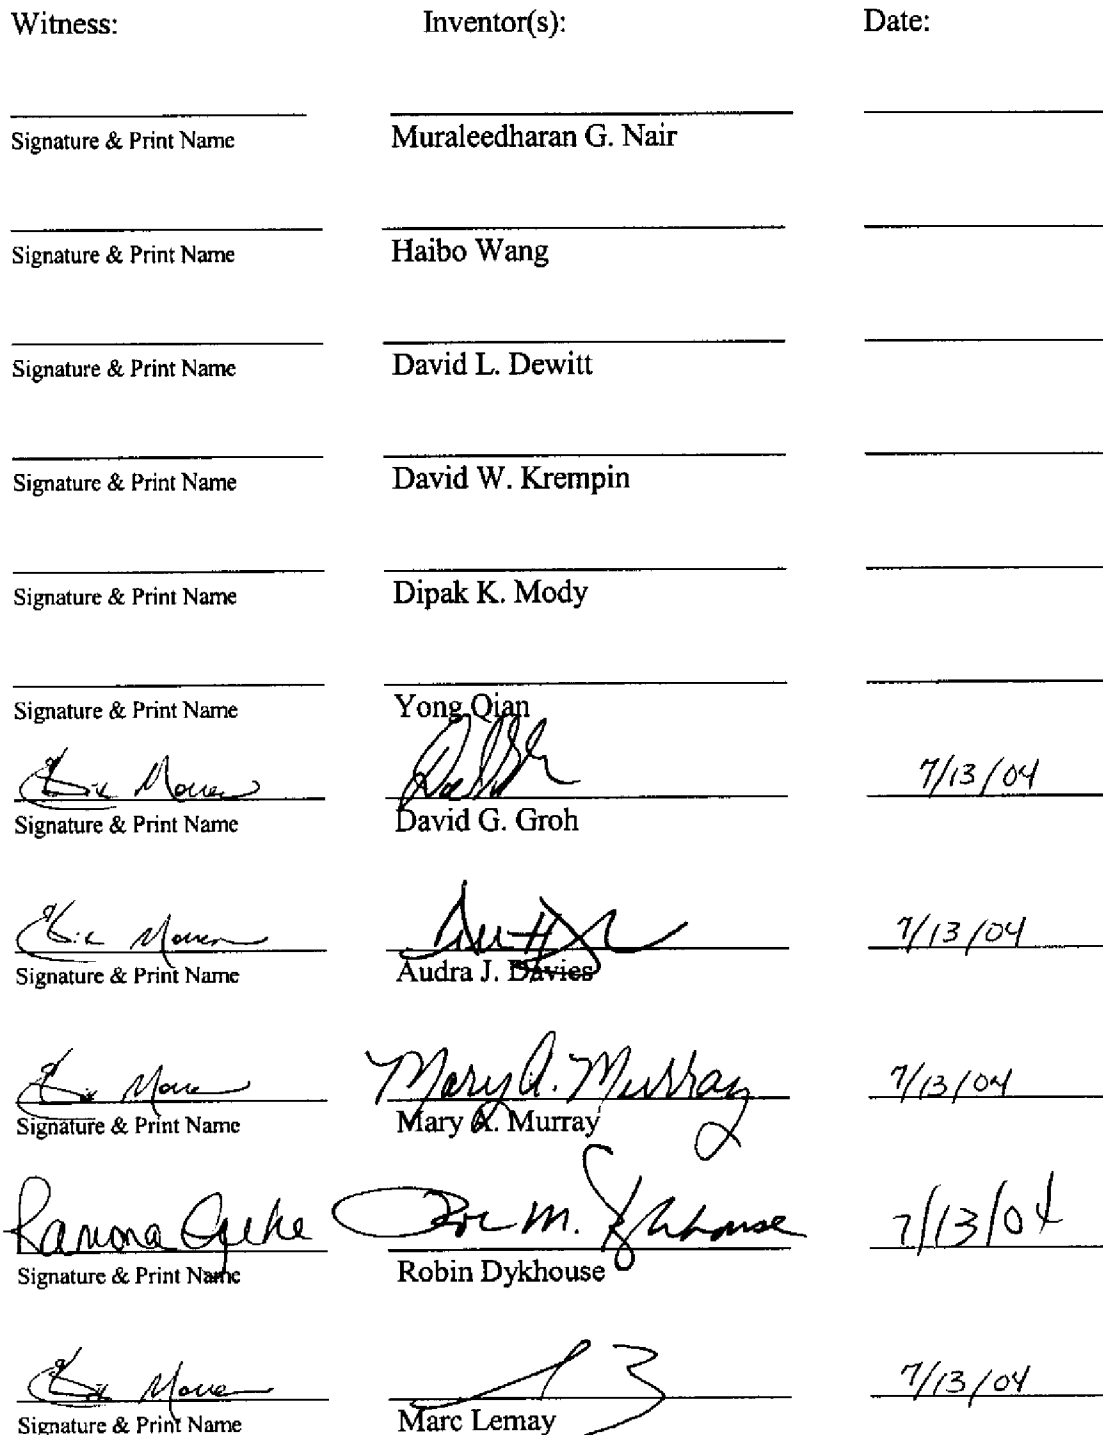 Witness: Inventor(s): Date:
Signature & Print Name Muraleedharan G. Nair
Signature & Print Name Haibo Wang
Signature & Print Name David L. Dewitt
Signature & Print Name David W. Krempin
Signature & Print Name Dipak K. Mody
Signature & Print Name Yong Qian
7/13/04
Signature & Print Name David G. Groh
7/13/04
Signature & Print Name Audra J. Davies
Mary A. Murray 7/13/04
Signature & Print Name Mary A. Murray
Ramona M. Dykhouse 7/13/04
Signature & Print Name Robin Dykhouse
7/13/04
Signature & Print Name Marc Lemay